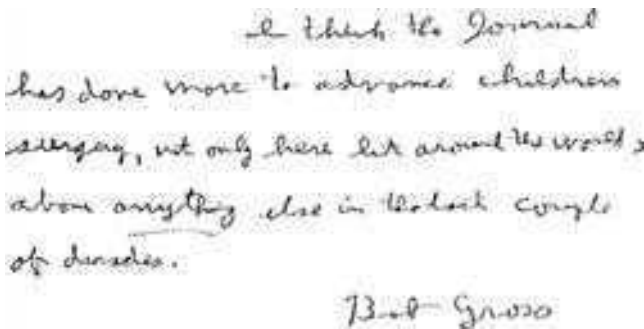 I think the Journal
has done more to advance childrens
surgery, not only here but around the world
above anything else in the last couple
of decades.
Bob Gross